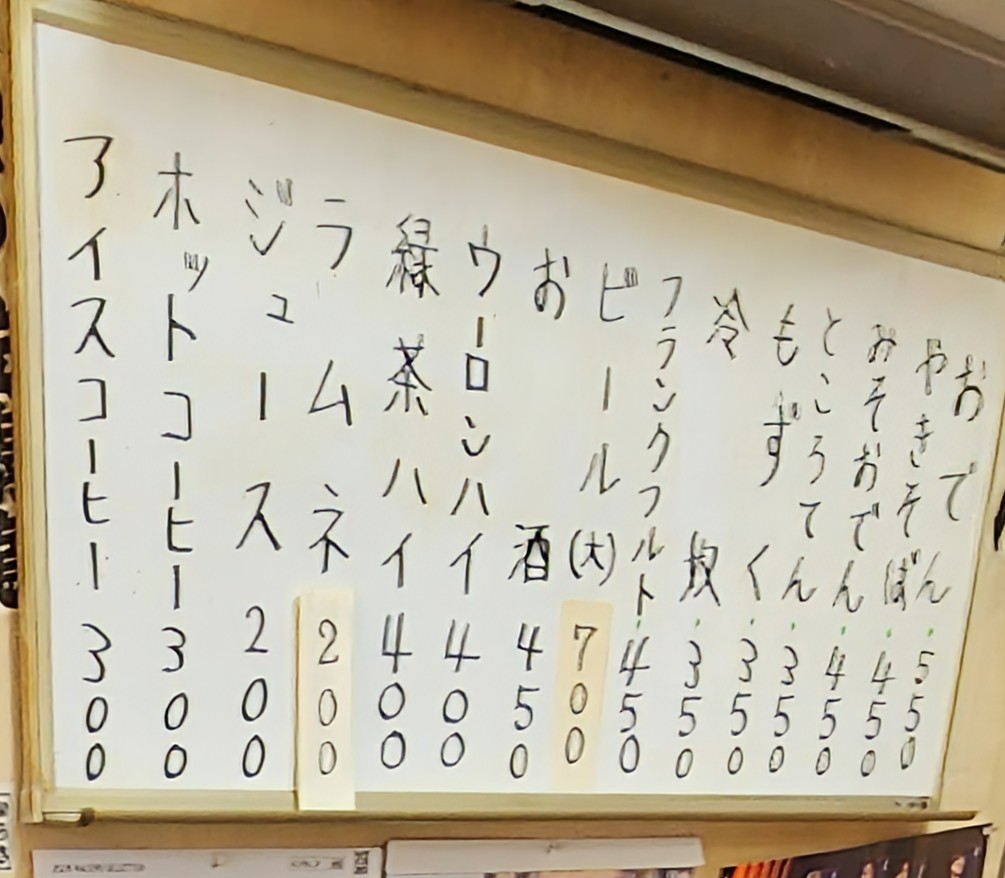 おでん・550
やきそば・450
みそおでん・450
ところてん・350
もずく・350
冷奴・350
フランクフルト・450
ビール(大)700
お酒450
ウーロンハイ400
緑茶ハイ400
ラムネ200
ジュース200
ホットコーヒー300
アイスコーヒー300